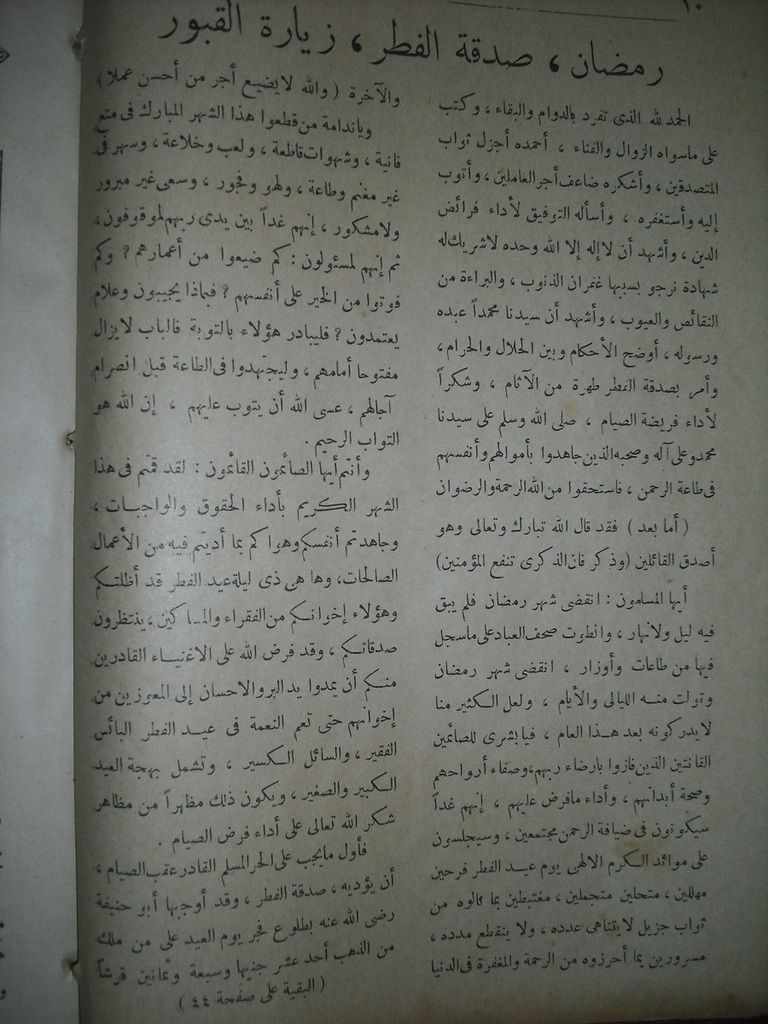 ١٠
رمضان، صدقة الفطر، زيارة القبور
الحمد لله الذى تفرد بالدوام والبقاء ، وكتب
على ماسواه الزوال والفناء ، أحمده أجزل ثواب
المتصدقين ، وأشكره ضاعف أجر العاملين ، وأتوب
إليه وأستغفره ، وأسأله التوفيق لأداء فرائض
الدين ، وأشهد أن لا إله إلا الله وحده لاشريك له
شهادة نرجو بسببها غفران الذنوب ، والبراءة من
النقائص والعيوب ، وأشهد أن سيدنا محمداً عبده
ورسوله ، أوضح الأحكام وبين الحلال والحرام،
وأمر بصدقة الفطر طهرة من الآثام ، وشكراً
لأداء فريضة الصيام ، صلى الله وسلم على سيدنا
محمد وعلى آله وصحبه الذين جاهدوا بأموالهم وأنفسهم
فى طاعة الرحمن ، فاستحقوا من الله الرحمة والرضوان
( أما بعد ) فقد قال الله تبارك وتعالى وهو
أصدق القائلين (وذكر فان الذكرى تنفع المؤمنين)
أيها المسلمون : انقضى شهر رمضان فلم يبق
فيه ليل ولانهار ، وانطوت صحف العباد على ماسجل
فيها من طاعات وأوزار ، انقضى شهر رمضان
وتولت منه الليالى والأيام ، ولعل الكثير منا
لايدركونه بعد هذا العام ، فيا بشرى للصائمين
القانتين الذين فازوا بارضاء ربهم، وصفاء أرواحهم
وصحة أبدانهم ، وأداء مافرض عليهم ، إنهم غداً
سيكونون فى ضيافة الرحمن مجتمعين ، وسيجلسون
على موائد الكرم الالهى يوم عيد الفطر فرحين
مهللين ، متحلين متجملين ، مغتبطين بما نالوه من
ثواب جزيل لايتناهى عدده ، ولا ينقطع مدده ،
مسرورين بما أحرزوه من الرحمة والمغفرة فى الدنيا
والآخرة ( والله لايضيع أجر من أحسن عملا )
وياندامة من قطعوا هذا الشهر المبارك فى متع
فانية ، وشهوات قاطعة ، ولعب وخلاعة ، وسهر فى
غير مغنم وطاعة ، ولهو وفجور ، وسعى غير مبرور
ولا مشكور ، إنهم غداً بين يدى ربهم لموقوفون،
ثم إنهم لمسئولون : كم ضيعوا من أعمارهم ? وكم
فوتوا من الخير على أنفسهم ? فبماذا يجيبون وعلام
يعتمدون ? فليبادر هؤلاء بالتوبة فالباب لايزال
مفتوحا أمامهم ، وليجتهدوا فى الطاعة قبل انصرام
آجالهم ، عسى الله أن يتوب عليهم ، إن الله هو
التواب الرحيم .
وأنتم أيها الصائمون القائمون : لقد قمتم فى هذا
الشهر الكريم بأداء الحقوق والواجبات ،
وجاهدتم أنفسكم وهواكم بما أديتم فيه من الأعمال
الصالحات، وها هى ذى ليلة عيد الفطر قد أظلتكم
وهؤلاء إخوانكم من الفقراء والمساكين ، ينتظرون
صدقاتكم ، وقد فرض الله على الاغنياء القادرين
منكم أن يمدوا يد البر والاحسان إلى المعوزين من
إخوانهم حتى تعم النعمة فى عيد الفطر البائس
الفقير ، والسائل الكسير ، وتشمل بهجة العيد
الكبير والصغير ، ويكون ذلك مظهراً من مظاهر
شكر الله تعالى على أداء فرض الصيام .
فأول مايجب على الحر المسلم القادر عقب الصيام ،
أن يؤديه ، صدقة الفطر ، وقد أوجبها أبو حنيفة
رضى الله عنه بطلوع فجر يوم العيد على من ملك
من الذهب أحد عشر جنيها وسبعة وثمانين قرشاً
( البقية على صفحة ٤٤ )